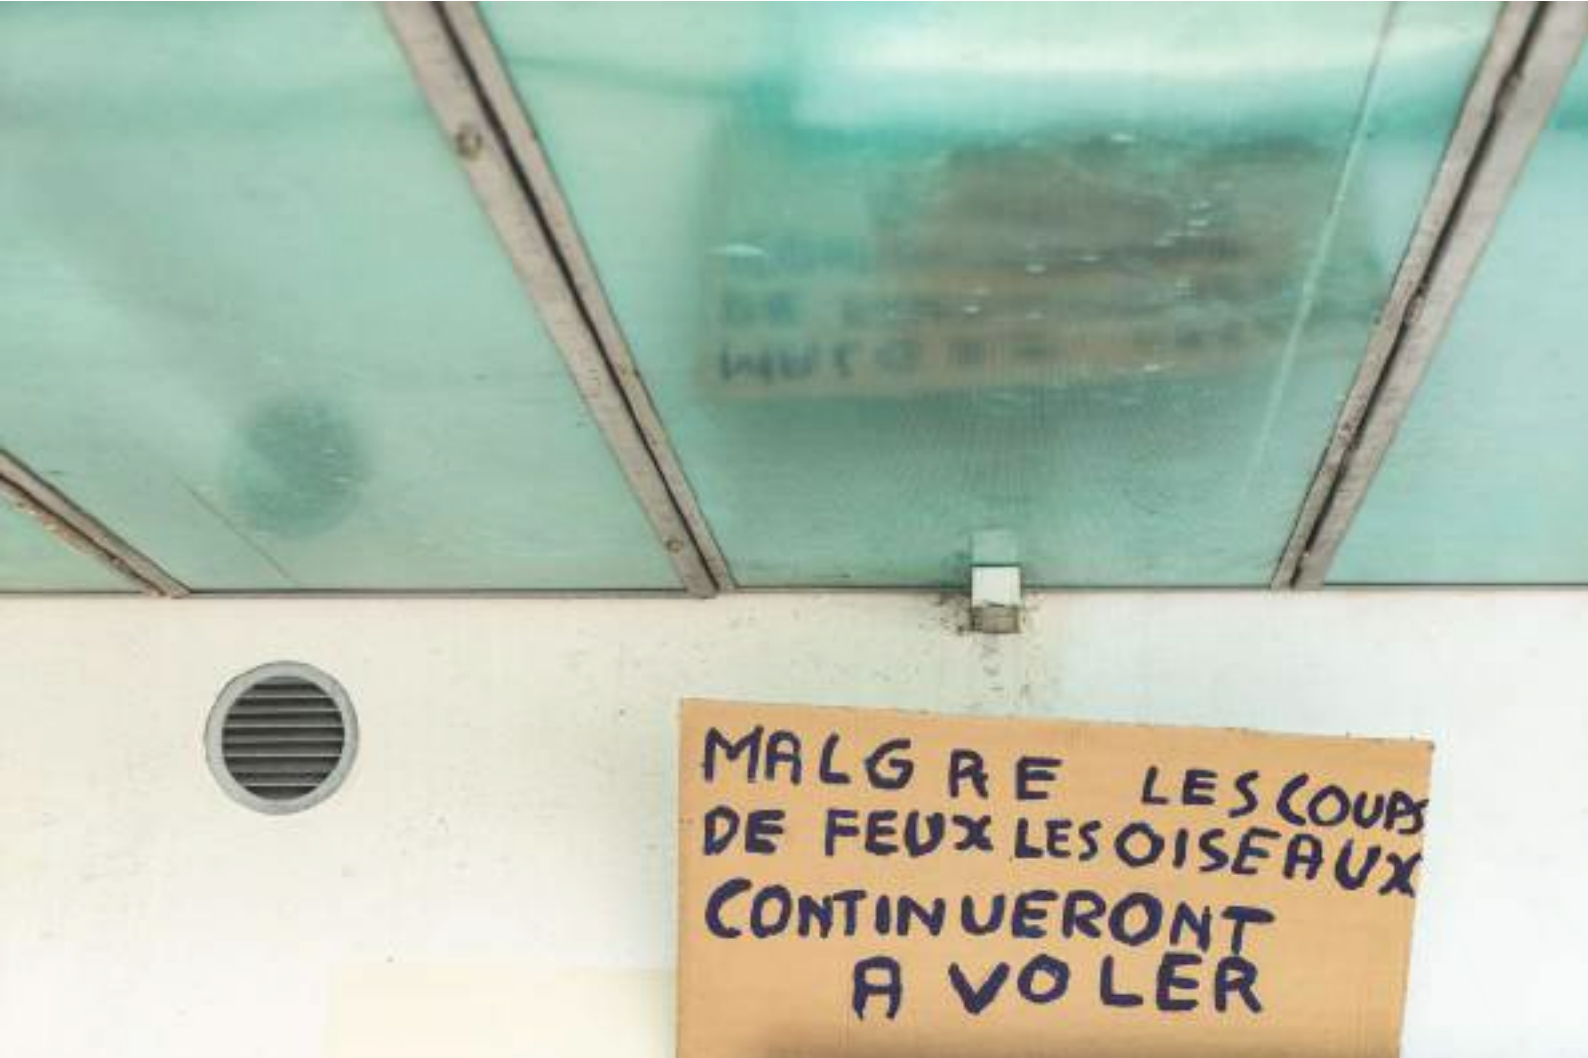 MALGRE LES COUPS
DE FEUX LES OISEAUX
CONTINUERONT
A VOLER